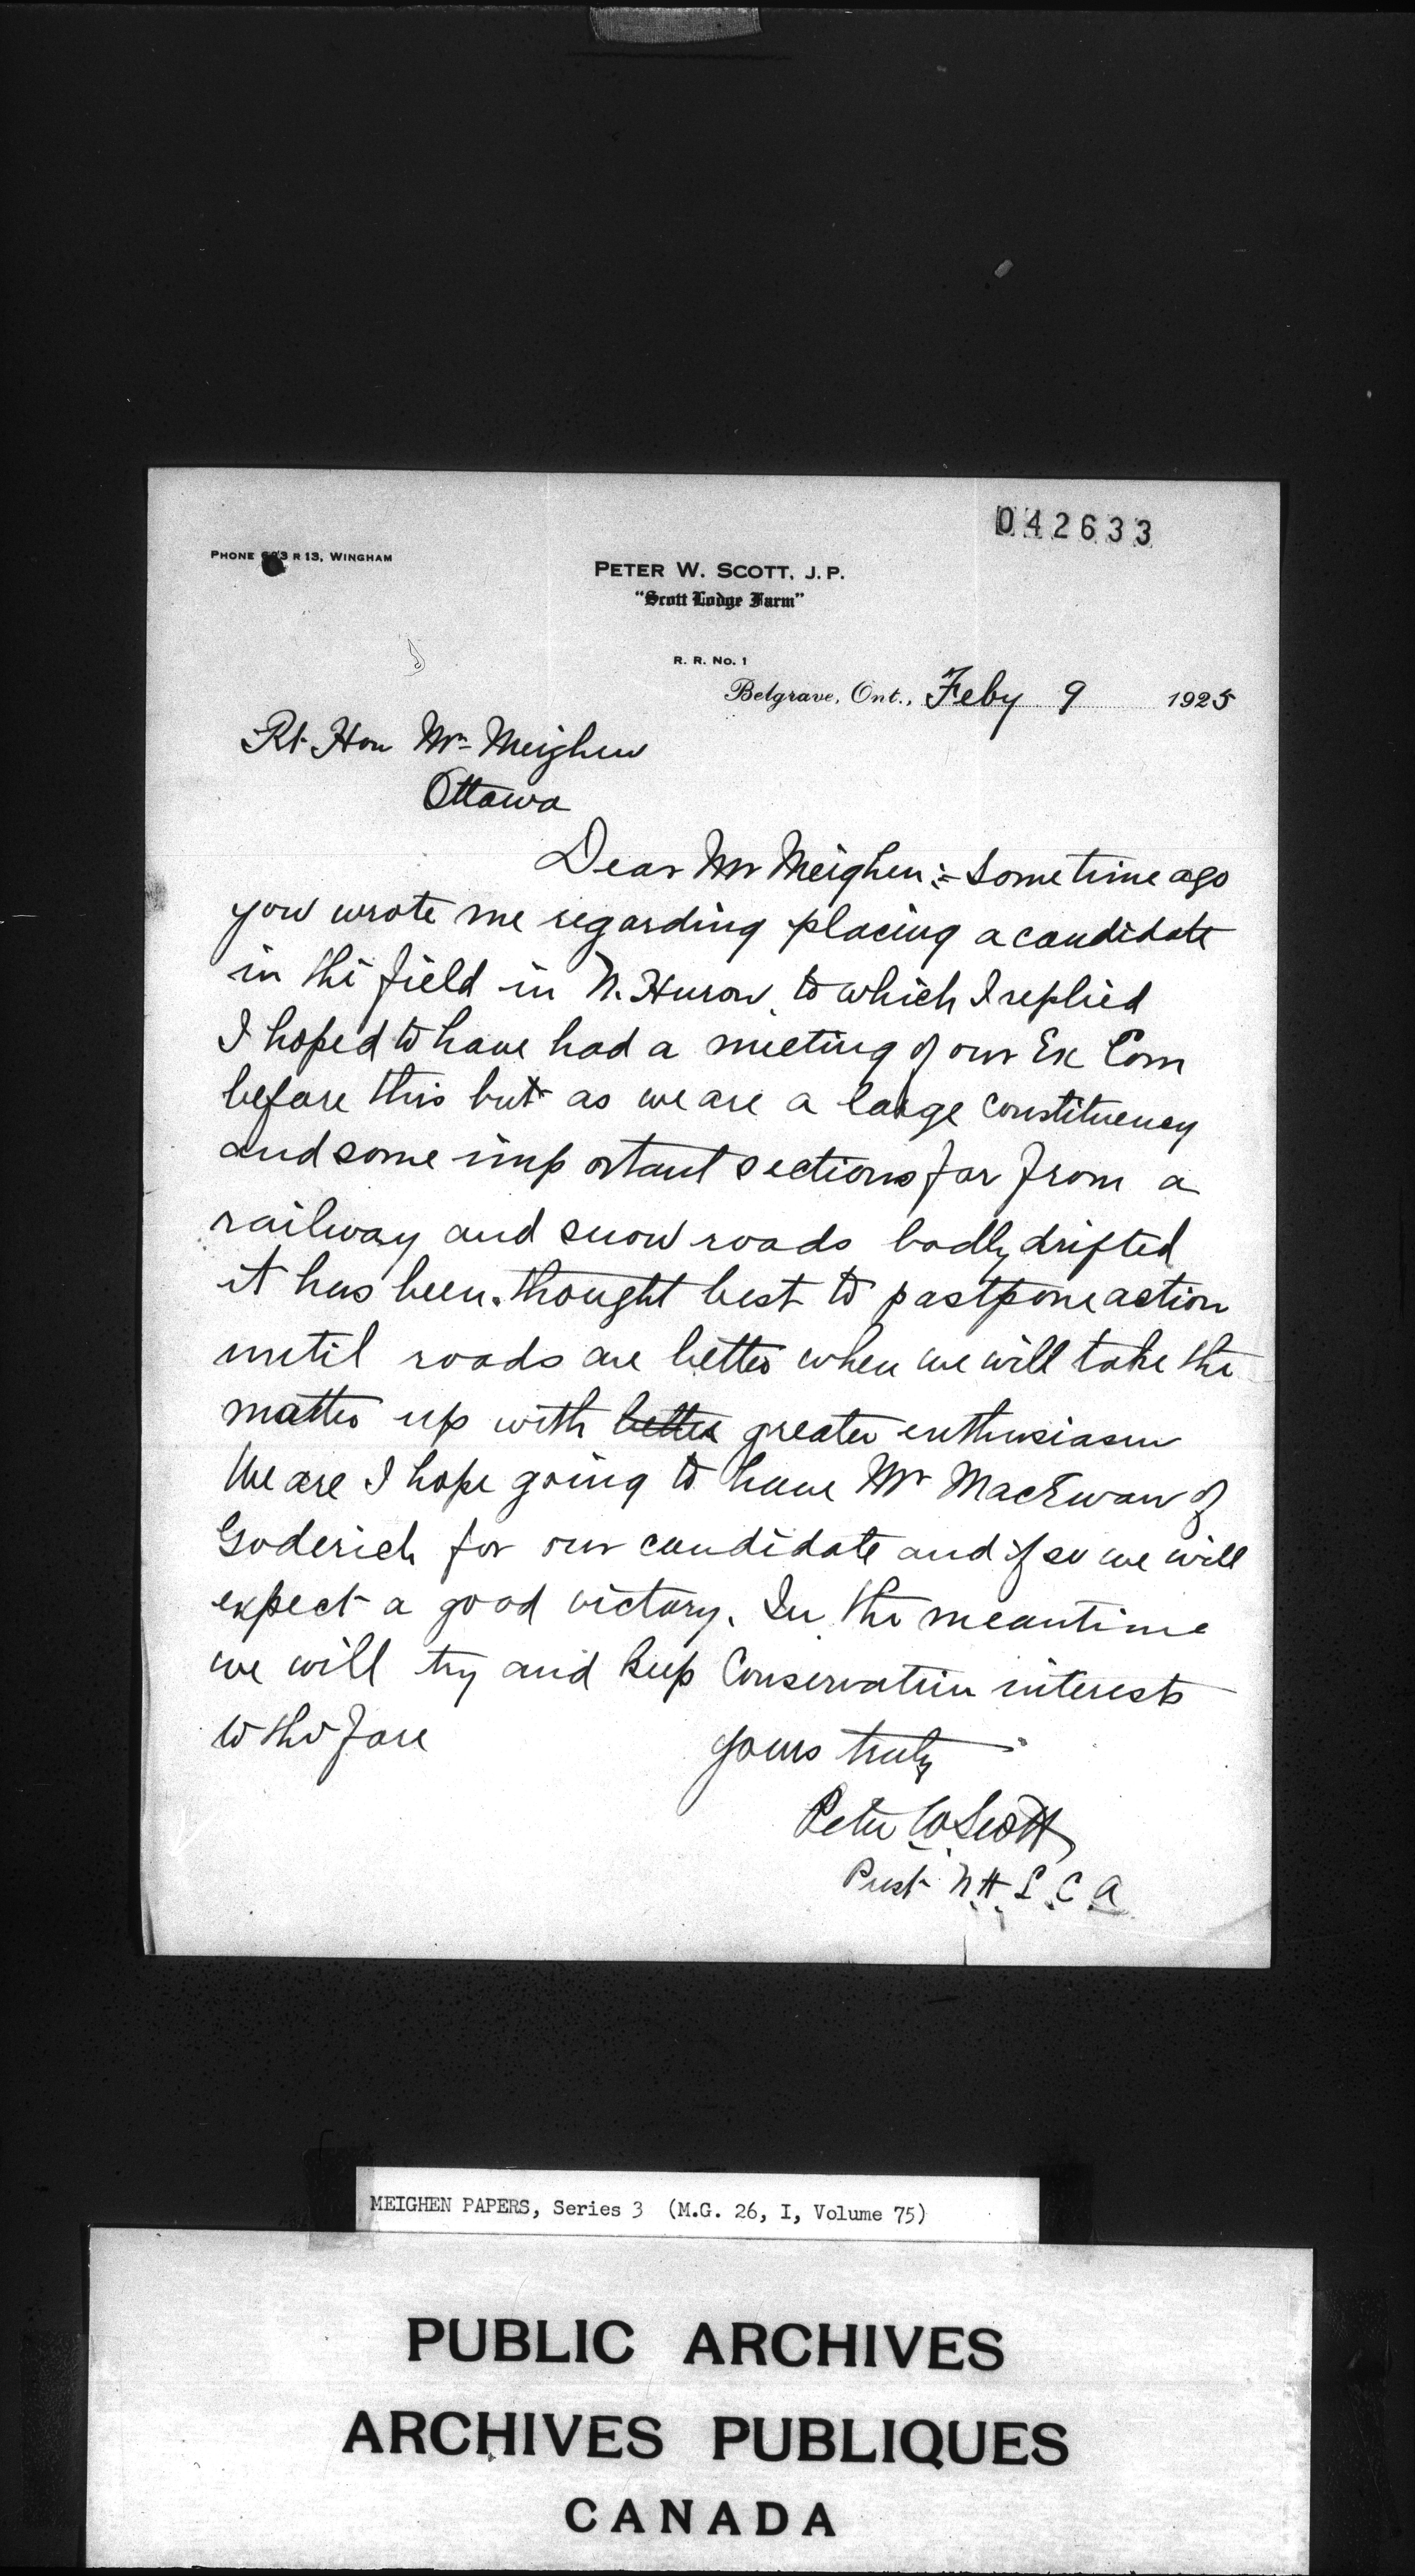 042633
PHONE 623 R 13, WINGHAM
PETER W. SCOTT, J.P.
"Scott Lodge Farm"
R. R. No. 1
Belgrave, Ont., Feby 9 1925
Rt Hon Mr Meighen
Ottawa
Dear Mr Meighen:- Sometime ago
you wrote me regarding placing a candidate
in the field in N. Huron, to which I replied
I hoped to have had a meeting of our Ex Com
before this but as we are a large constituency
and some important sections far from a
railway and snow roads badly drifted
it has been thought best to postpone action
until roads are better when we will take the
matter up with better greater enthusiasm
We are I hope going to have Mr MacEwan of
Goderich for our candidate and if so we will
expect a good victory. In the meantime
we will try and keep Conservative interests
to the fore
yours truly
Peter W Scott
Prest N.H.L.C.A
MEIGHEN PAPERS, Series 3 (M.G. 26, I, Volume 75)
PUBLIC ARCHIVES
ARCHIVES PUBLIQUES
CANADA